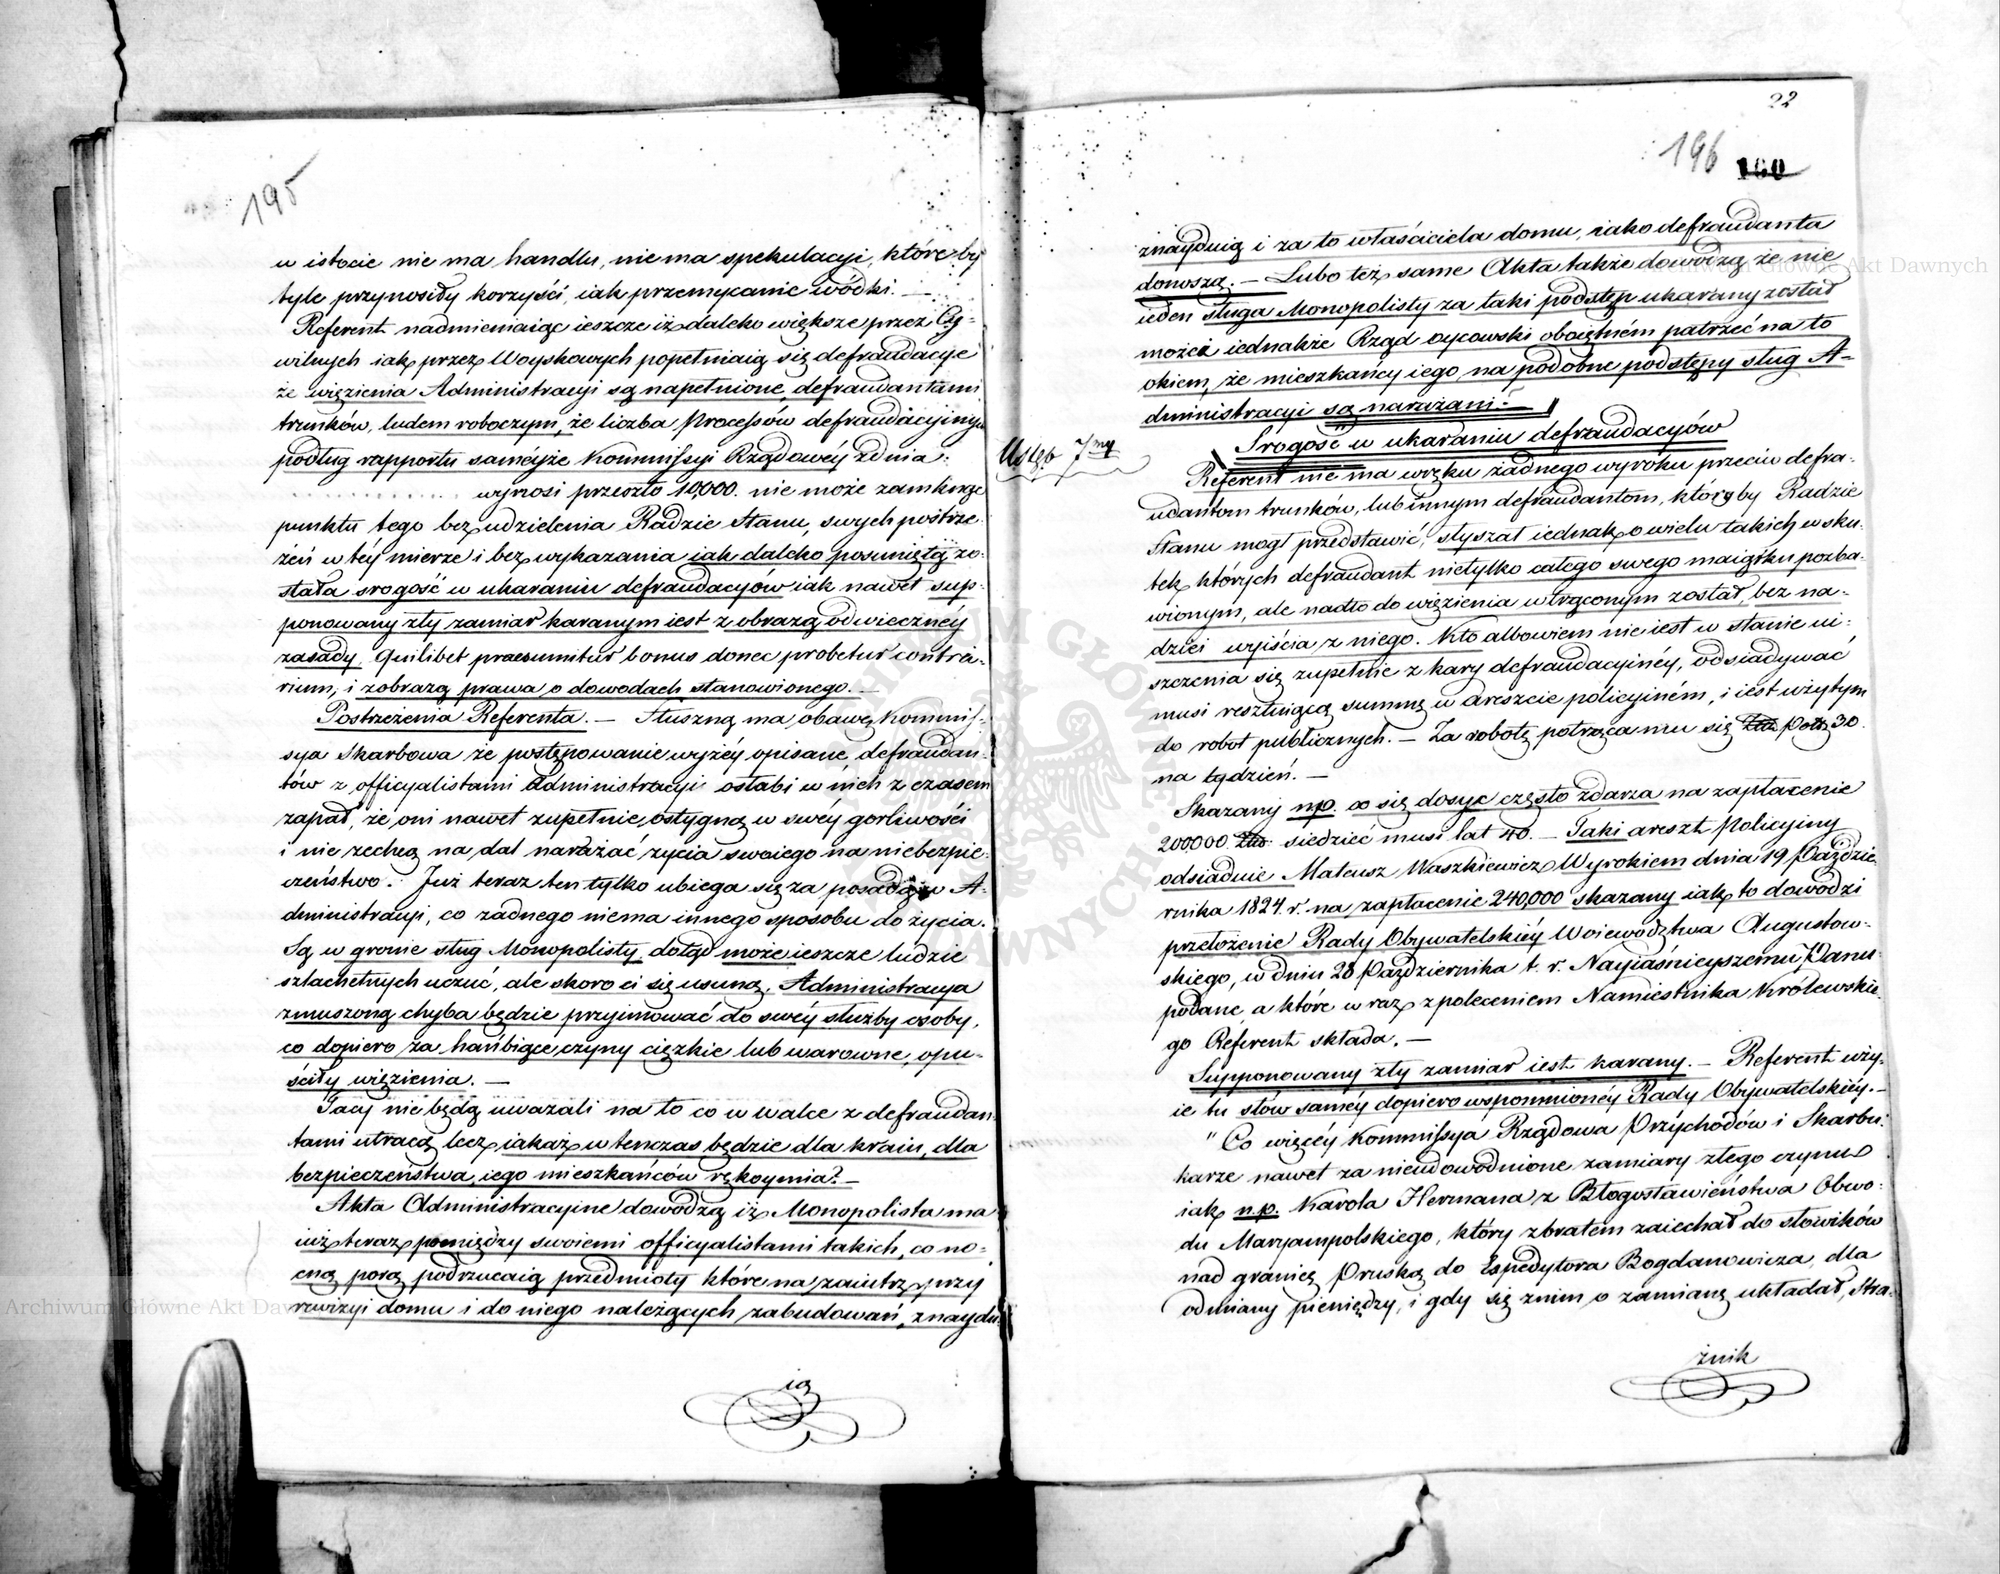 195
w istocie nie ma handlu, nie ma spekulacyi, które by
tyle przynosiły korzyści, iak przemycanie wódki. —
Referent nadmieniaiąc ieszcze iż daleko większe przez Cy-
wilnych iak przez Woyskowych popełniaią się defraudacye
że więzienia Administracyi są napełnione defraudantami
trunków, ludem roboczym, że liczba Processów defraudacyinych
podług rapportu saméyże Kommissyi Rządowéy z dnia:
. . . . . . . . . . . . wynosi przeszło 10,000. nie może zamknąć
punktu tego bez udzielenia Radzie Stanu, swych postrze-
żeń w téy mierze i bez wykazania iak daleko posuniętą zo-
stała srogość w ukaraniu defraudacyów iak nawet sup-
ponowany zły zamiar karanym iest z obrazą odwiecznéy
zasady, Quilibet praesumitur bonus donec probetur contra-
rium, i z obrazą prawa o dowodach stanowionego. —
Postrzeżenia Referenta. — Słuszną ma obawę Kommis-
sya Skarbowa że postępowanie wyżéy opisane, defraudan-
tów z officyalistami Administracyi osłabi w nich z czasem
zapał, że oni nawet zupełnie ostygną w swéy gorliwości
i nie zechcą na dal narażać życia swoiego na niebezpie-
czeństwo. Już teraz ten tylko ubiega się za posadą w A-
dministracyi, co żadnego niema innego sposobu do życia.
Są w gronie sług Monopolisty dotąd może ieszcze ludzie
szlachetnych uczuć, ale skoro ci się usuną, Administracya
zmuszoną chyba będzie przyimować do swéy służby osoby,
co dopiero za hańbiące czyny ciężkie lub warowne, opu-
ściły więzienia. —
Tacy nie będą uważali na to co w walce z defraudan-
tami utracą lecz iakaż w tenczas będzie dla kraiu, dla
bezpieczeństwa iego mieszkańców rękoymia? —
Akta Administracyine dowodzą iż Monopolista ma
iuż teraz pomiędzy swoiemi officyalistami takich, co no-
cną porą podrzucaią przedmioty które na zaiutrz przy
rewizyi domu i do niego należących zabudowań, znaydu-
ią
22
196
160
znayduią i za to właściciela domu, iako defraudanta
donoszą. — Lubo też same Akta także dowodzą że nie
ieden sługa Monopolisty za taki podstęp ukarany został
możeż iednakże Rząd oycowski oboiętném patrzeć na to
okiem, że mieszkańcy iego na podobne podstępy sług A-
dministracyi są narażani. —
Ustęp 7my
Srogość w ukaraniu defraudacyów
Referent nie ma w ręku żadnego wyroku przeciw defra-
udantom trunków, lub innym defraudantom, któryby Radzie
Stanu mógł przedstawić, słyszał iednak o wielu takich w sku-
tek których defraudant nietylko całego swego maiątku pozba-
wionym, ale nadto do więzienia wtrąconym został, bez na-
dziei wyiścia z niego. Kto albowiem nie iest w stanie ui-
szczenia się zupełnie z kary defraudacyinéy, odsiadywać
musi resztuiącą summę w areszcie policyiném, i iest użytym
do robot publicznych. — Za robotę potrąca mu się 30.
na tydzień. —
Skazany np. co się dosyc często zdarza na zapłacenie
200000. siedzieć musi lat 40. — Taki areszt Policyiny
odsiaduie Mateusz Waszkiewicz Wyrokiem dnia 19 Paździe-
rnika 1824. r. na zapłacenie 240,000 skazany iak to dowodzi
przełożenie Rady Obywatelskiéy Woiewództwa Augustow-
skiego, w dniu 28 Października t. r. Nayiaśnieyszemu Panu
podane, a które w raz z poleceniem Namiestnika Królewskie-
go Referent składa. —
Supponowany zły zamiar iest karany. — Referent uży-
ie tu słów saméy dopiero wspomnionéy Rady Obywatelskiéy. —
" Co więcéy Kommissya Rządowa Przychodów i Skarbu:
karze nawet za nieudowodnione zamiary złego czynu
iak n.p. Karola Hermana z Błogosławieństwa Obwo-
du Maryampolskiego, który z bratem zaiechał do słowików
nad granicę Pruską do Expedytora Bogdanowicza, dla
odmiany pieniędzy, i gdy się z nim o zamianę układał, Stra-
żnik
Archiwum Główne Akt Dawnych
Archiwum Główne Akt Dawnych